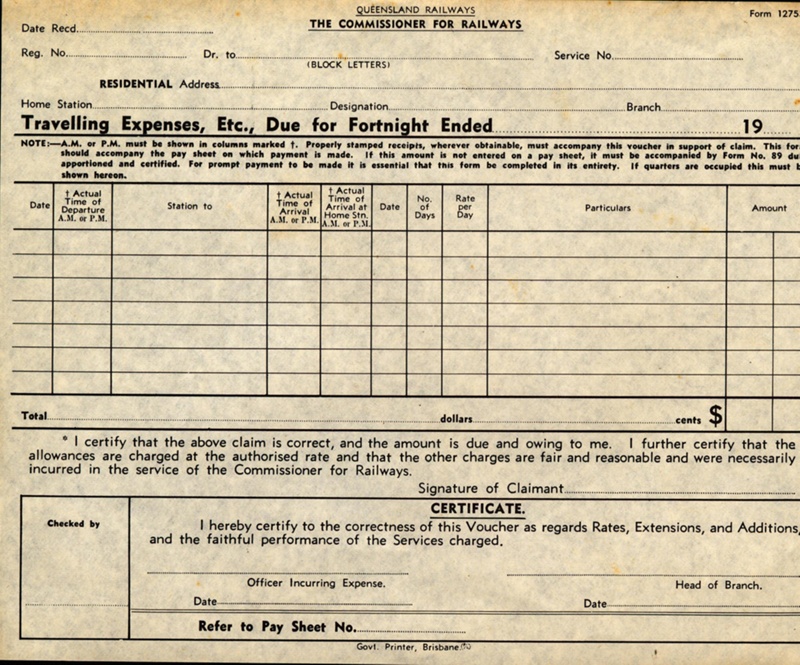 QUEENSLAND RAILWAYS
Form 1275
THE COMMISSIONER FOR RAILWAYS
Date Recd.
Reg. No. Dr. to Service No.
(BLOCK LETTERS)
RESIDENTIAL Address
Home Station Designation Branch
Travelling Expenses, Etc., Due for Fortnight Ended 19
NOTE:—A.M. or P.M. must be shown in columns marked †. Properly stamped receipts, wherever obtainable, must accompany this voucher in support of claim. This for
should accompany the pay sheet on which payment is made. If this amount is not entered on a pay sheet, it must be accompanied by Form No. 89 du
apportioned and certified. For prompt payment to be made it is essential that this form be completed in its entirety. If quarters are occupied this must b
shown hereon.
Date
† Actual
Time of
Departure
A.M. or P.M.
Station to
† Actual
Time of
Arrival
A.M. or P.M.
† Actual
Time of
Arrival at
Home Stn.
A.M. or P.M.
Date
No.
of
Days
Rate
per
Day
Particulars
Amount
Total dollars cents $
* I certify that the above claim is correct, and the amount is due and owing to me. I further certify that the
allowances are charged at the authorised rate and that the other charges are fair and reasonable and were necessarily
incurred in the service of the Commissioner for Railways.
Signature of Claimant
CERTIFICATE.
Checked by
I hereby certify to the correctness of this Voucher as regards Rates, Extensions, and Additions,
and the faithful performance of the Services charged.
Officer Incurring Expense. Head of Branch.
Date Date
Refer to Pay Sheet No.
Govt. Printer, Brisbane